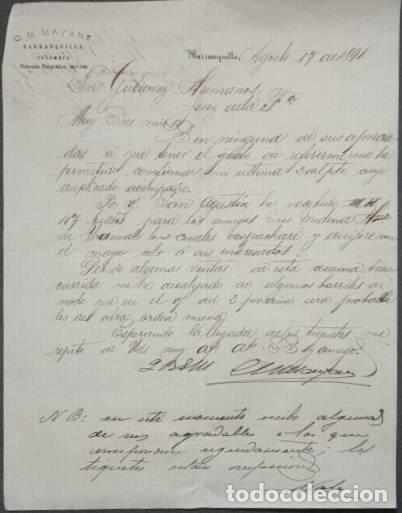 C. M. MAYANS
BARRANQUILLA
COLOMBIA
Dirección Telegráfica: MAYANS
Barranquilla, Agosto 17 de 1891
Sres Gutierrez Hermanos.
Jerez de la Fra
Muy Sres mios:
Sin ninguna de sus aprecia-
das á que tener el gusto de referirme me
permito confirmar mi última
duplicado acompaño.
Por vr San Agustin he recibido
47 bultos para los amigos Sres Medina Hnos
de los cuales despacharé y dirijiré con
el mayor celo á sus interesados.
Debido algunas ventas de esta semana trans-
currida me ha desalojado de algunos barriles de
modo que en el vr del 3 próximo será probable
les dé otra orden nueva.
Esperando la llegada de los tiquetes me
repito de Uds muy at. at. S. S. y amigo.
Q B S M
NB: en este momento recibo algunas
de sus agradables á las que
corresponderé seguidamente; los
tiquetes están
Vale
todocoleccion.net